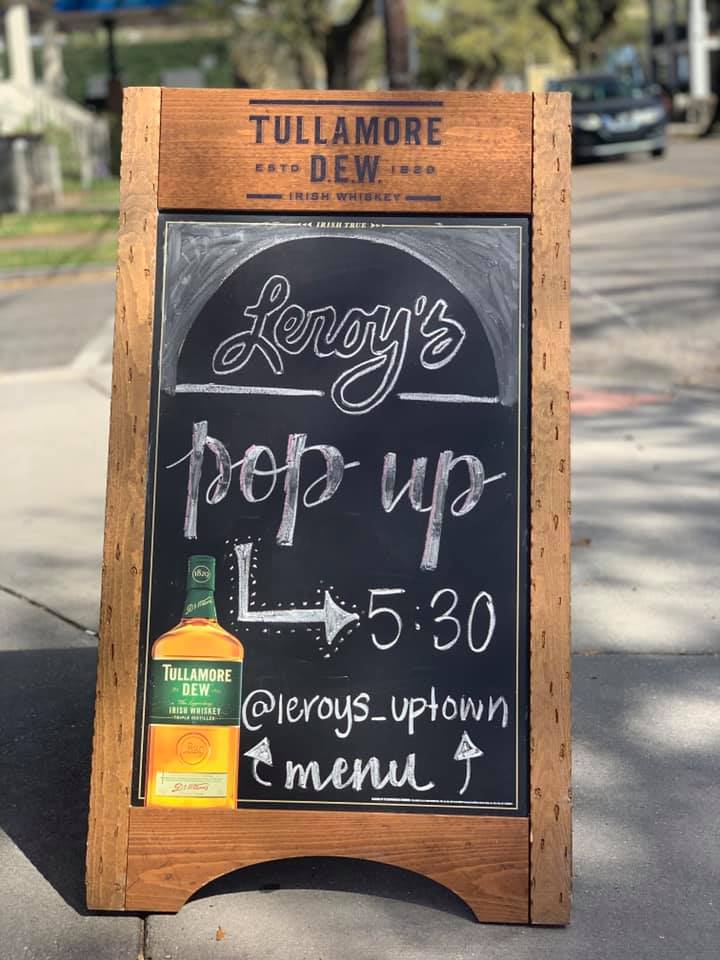 TULLAMORE
ESTD D.E.W. 1829
IRISH WHISKEY
IRISH TRUE
Leroy's
pop up
5:30
1829
TULLAMORE
DEW
The Legendary
IRISH WHISKEY
TRIPLE DISTILLED
@leroys_uptown
menu